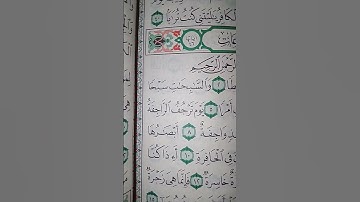 الْكَافِرُ يَٰلَيْتَنِي كُنتُ تُرَٰبًا ٤٠
عات
الرَّحْمَٰنِ الرَّحِيمِ
طًا ٢ وَالسَّٰبِحَٰتِ سَبْحًا
أَمْرًا ٥ يَوْمَ تَرْجُفُ الرَّاجِفَةُ
ذٍ وَاجِفَةٌ ٨ أَبْصَٰرُهَا
فِي الْحَافِرَةِ ١٠ أَءِذَا كُنَّا
ةٌ خَاسِرَةٌ ١٢ فَإِنَّمَا هِيَ زَجْرَةٌ